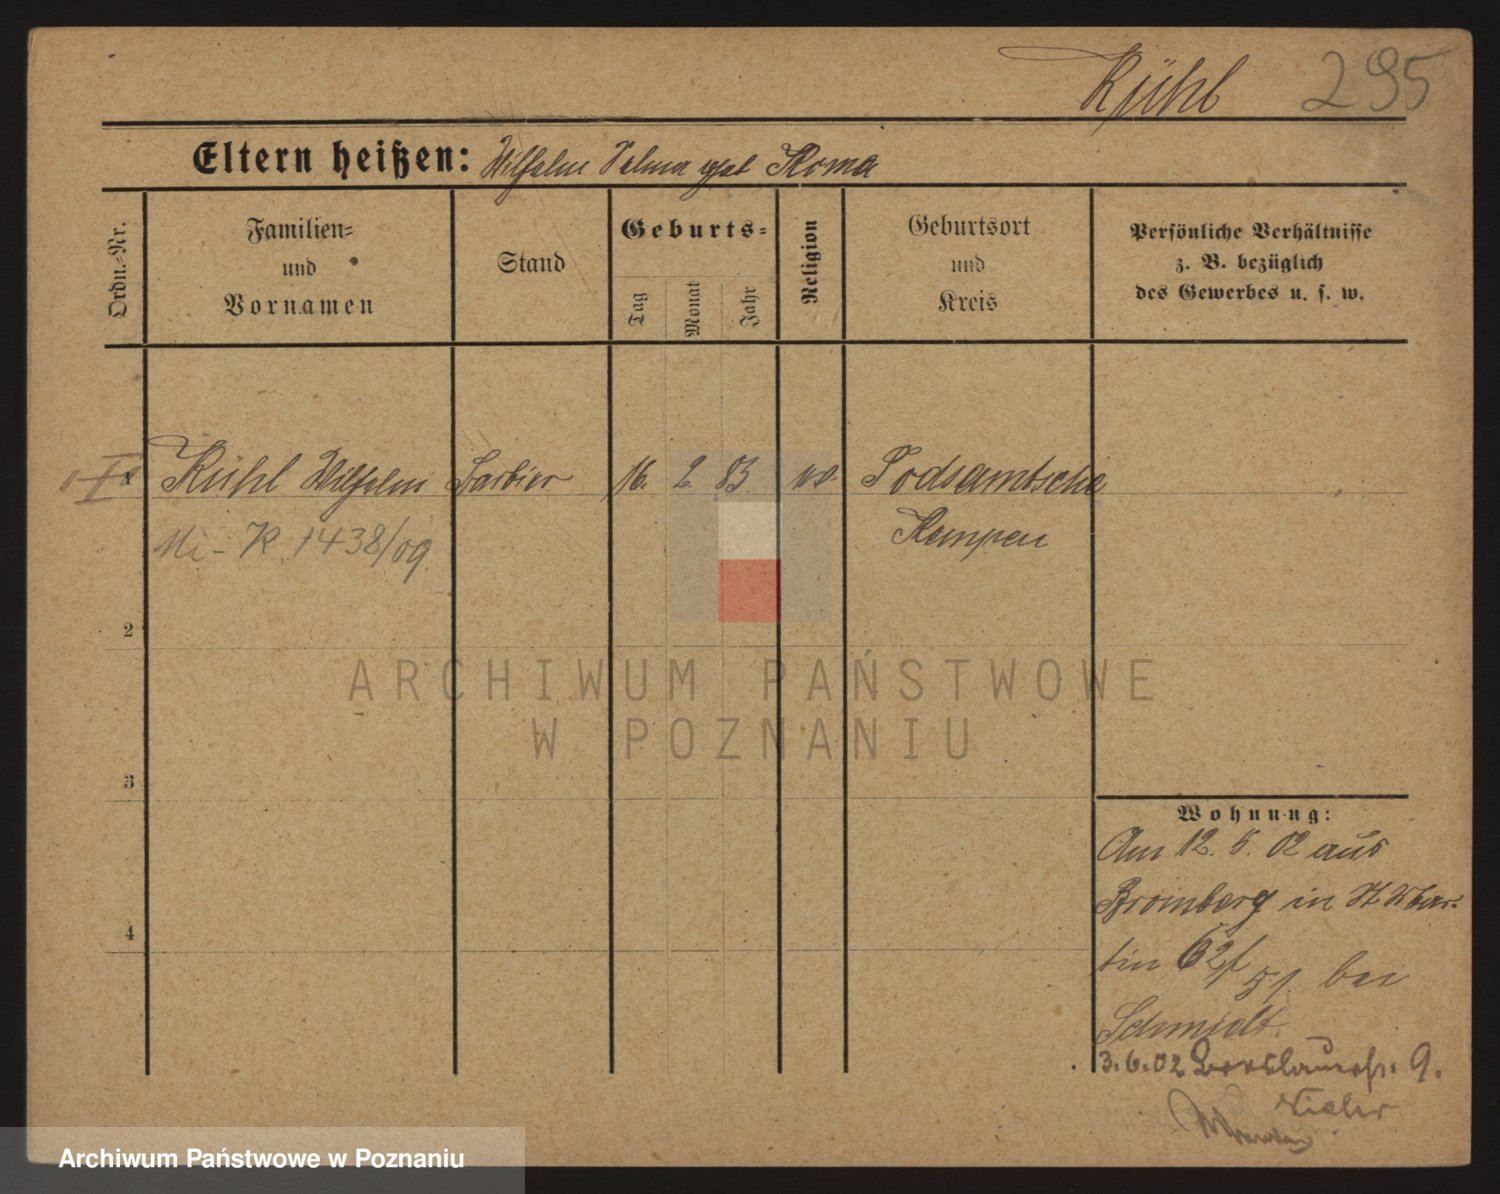 Kühl 295
Eltern heißen: Wilhelm Selma geb Roma
Ordn.-Nr.
Familien-
und
Vornamen
Stand
Geburts-
Tag
Monat
Jahr
Religion
Geburtsort
und
Kreis
Persönliche Verhältnisse
z. B. bezüglich
des Gewerbes u. s. w.
1
Kühl Wilhelm Barbier 16. 2. 83 Podsamtsche
Kempen
Mi-K 1438/09.
2
3
4
Wohnung:
Am 12. 5. 02 aus
Bromberg in St
62/ 51 bei
Schmidt.
3.6.02 Breslauerstr. 9.
ARCHIWUM PAŃSTWOWE
W POZNANIU
Archiwum Państwowe w Poznaniu